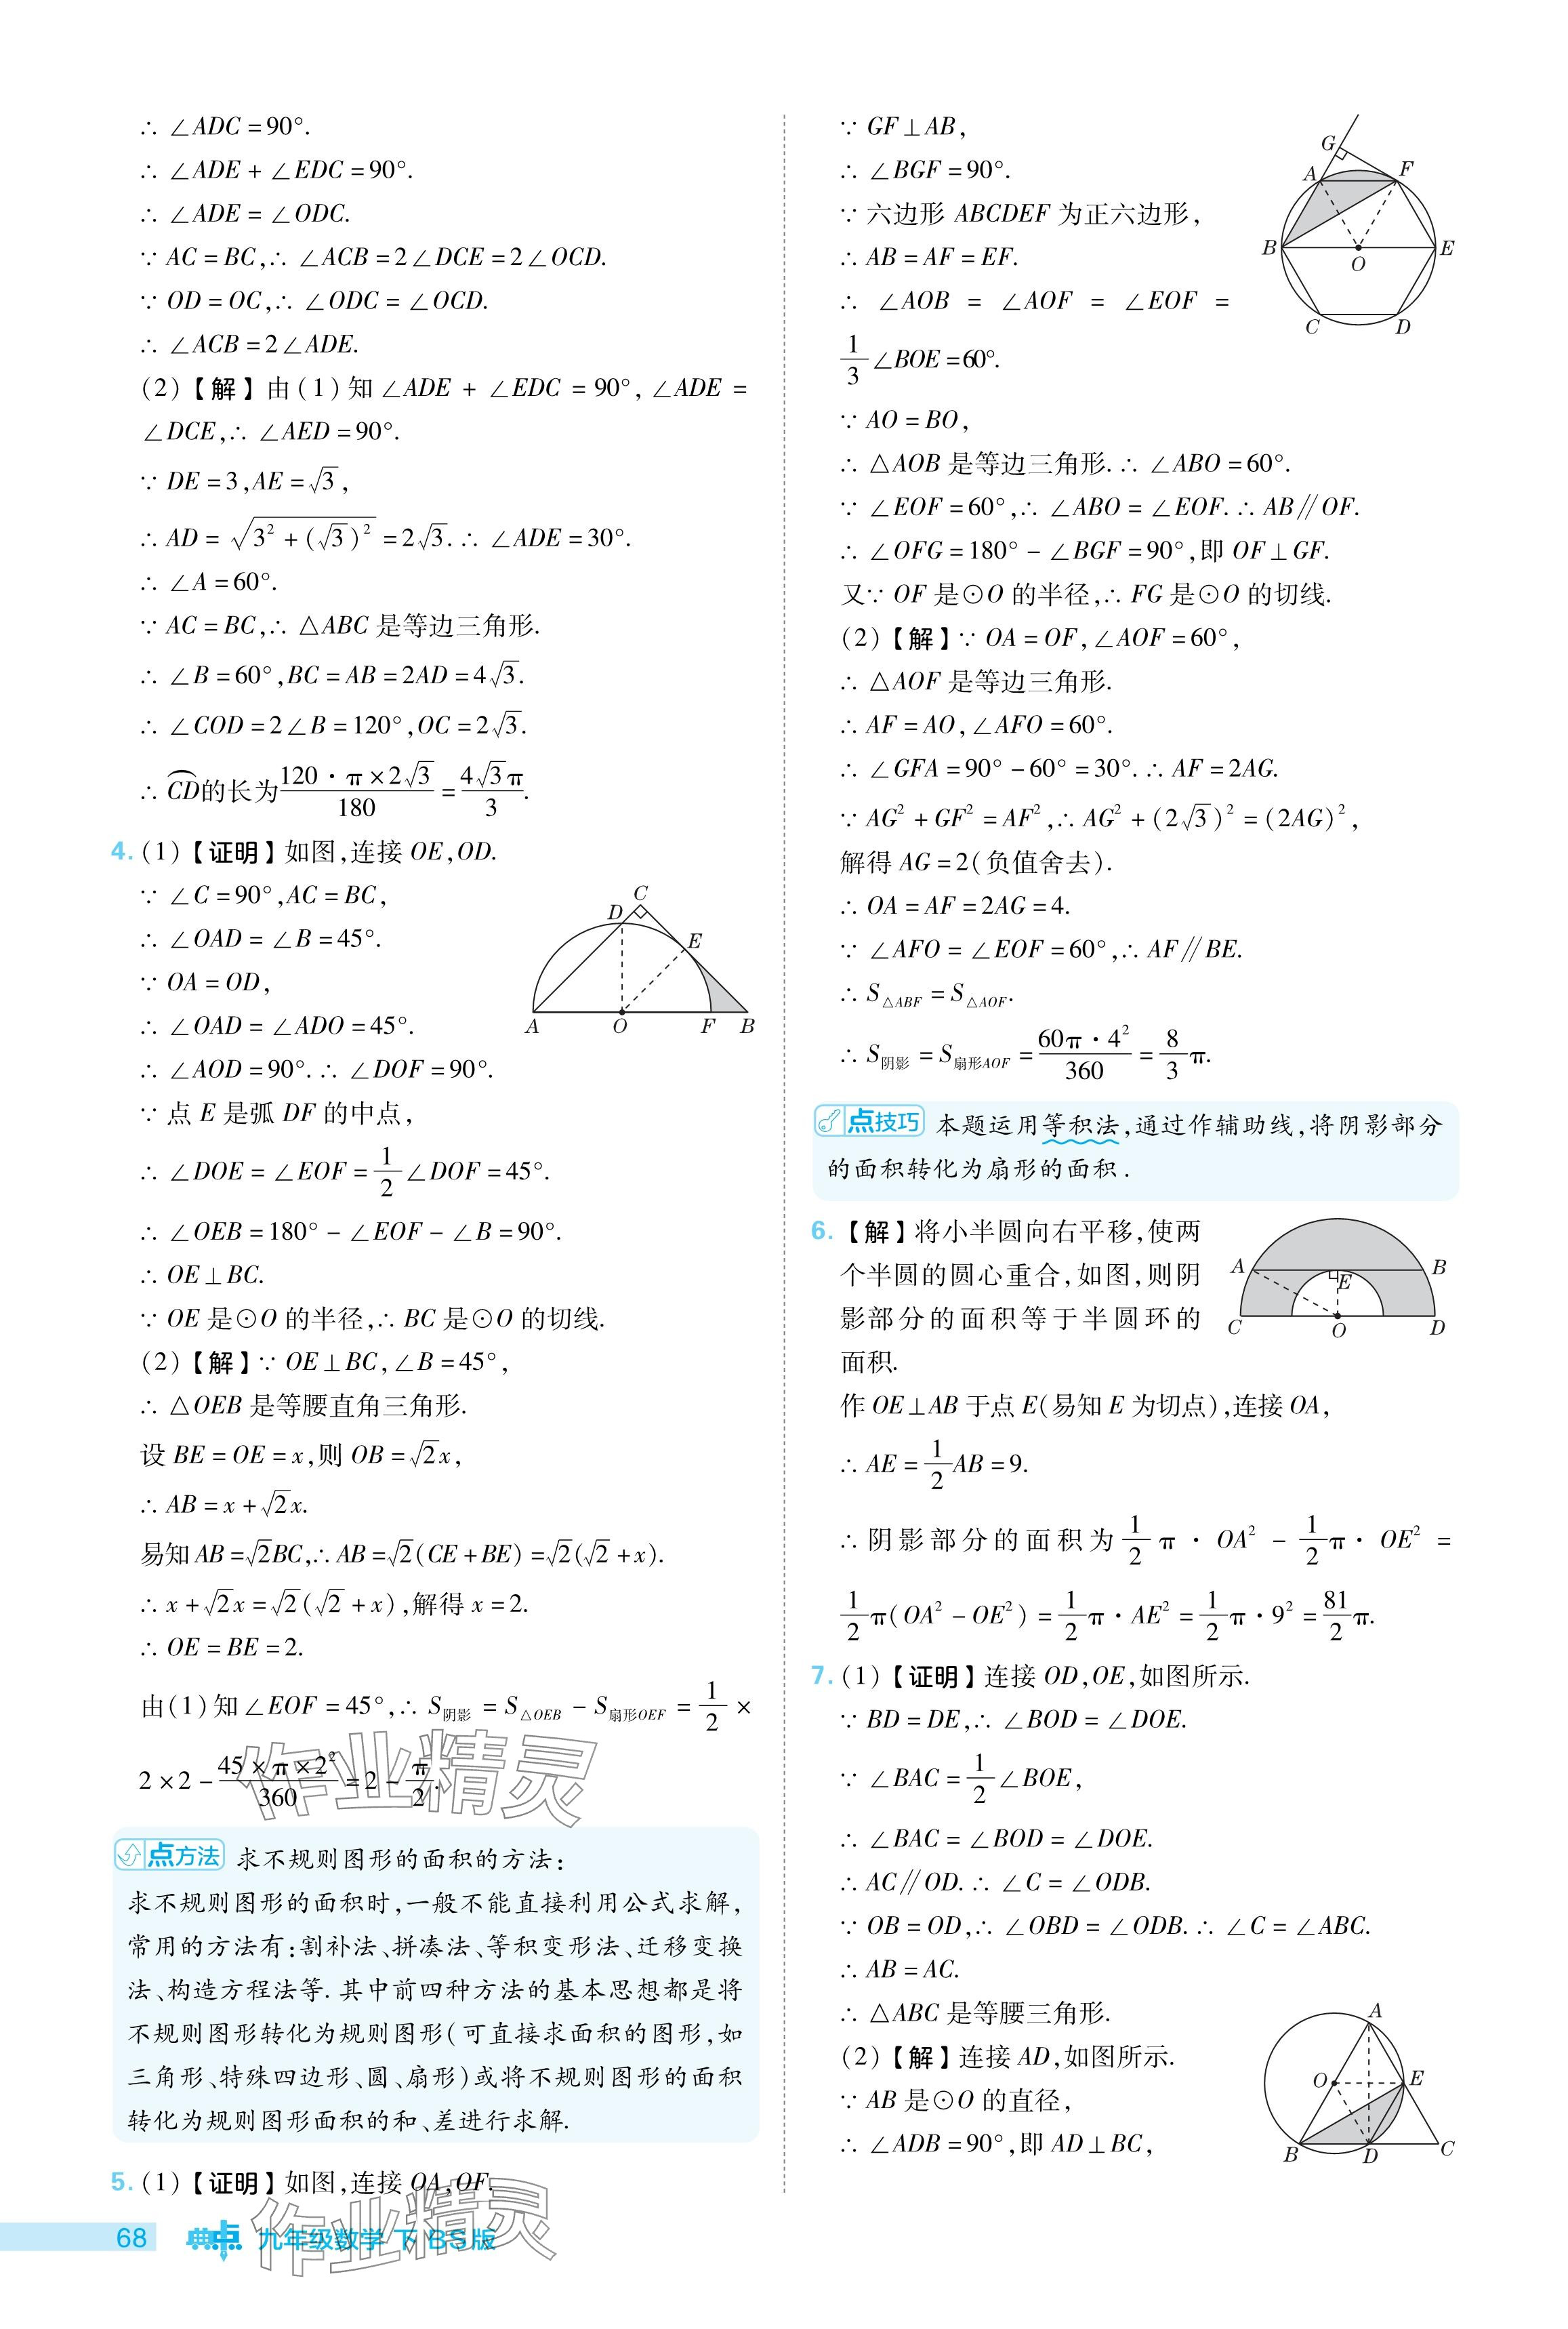 ∴ ∠ADC = 90°.
∴ ∠ADE + ∠EDC = 90°.
∴ ∠ADE = ∠ODC.
∵ AC = BC,∴ ∠ACB = 2∠DCE = 2∠OCD.
∵ OD = OC,∴ ∠ODC = ∠OCD.
∴ ∠ACB = 2∠ADE.
(2)【解】由(1)知∠ADE + ∠EDC = 90°, ∠ADE =
∠DCE,∴ ∠AED = 90°.
∵ DE = 3,AE = √3,
∴ AD = √(3² + (√3)²) = 2√3. ∴ ∠ADE = 30°.
∴ ∠A = 60°.
∵ AC = BC,∴ △ABC 是等边三角形.
∴ ∠B = 60°,BC = AB = 2AD = 4√3.
∴ ∠COD = 2∠B = 120°,OC = 2√3.
∴ ⌒CD的长为 (120·π×2√3)/180 = (4√3π)/3.
4. (1)【证明】如图,连接 OE,OD.
∵ ∠C = 90°,AC = BC,
∴ ∠OAD = ∠B = 45°.
∵ OA = OD,
∴ ∠OAD = ∠ADO = 45°.
∴ ∠AOD = 90°. ∴ ∠DOF = 90°.
∵ 点 E 是弧 DF 的中点,
∴ ∠DOE = ∠EOF = 1/2 ∠DOF = 45°.
∴ ∠OEB = 180° − ∠EOF − ∠B = 90°.
∴ OE⊥BC.
∵ OE 是⊙O 的半径,∴ BC 是⊙O 的切线.
(2)【解】∵ OE⊥BC,∠B = 45°,
∴ △OEB 是等腰直角三角形.
设 BE = OE = x,则 OB = √2x,
∴ AB = x + √2x.
易知 AB = √2BC,∴ AB = √2(CE + BE) = √2(√2 + x).
∴ x + √2x = √2(√2 + x),解得 x = 2.
∴ OE = BE = 2.
由(1)知∠EOF = 45°,∴ S阴影 = S△OEB − S扇形OEF = 1/2 ×
2 × 2 − (45×π×2²)/360 = 2 − π/2.
C
D
E
A O F B
点方法 求不规则图形的面积的方法:
求不规则图形的面积时,一般不能直接利用公式求解,
常用的方法有:割补法、拼凑法、等积变形法、迁移变换
法、构造方程法等. 其中前四种方法的基本思想都是将
不规则图形转化为规则图形(可直接求面积的图形,如
三角形、特殊四边形、圆、扇形)或将不规则图形的面积
转化为规则图形面积的和、差进行求解.
5. (1)【证明】如图,连接 OA,OF.
∵ GF⊥AB,
∴ ∠BGF = 90°.
∵ 六边形 ABCDEF 为正六边形,
∴ AB = AF = EF.
∴ ∠AOB = ∠AOF = ∠EOF =
1/3 ∠BOE = 60°.
∵ AO = BO,
∴ △AOB 是等边三角形. ∴ ∠ABO = 60°.
∵ ∠EOF = 60°,∴ ∠ABO = ∠EOF. ∴ AB∥OF.
∴ ∠OFG = 180° − ∠BGF = 90°,即 OF⊥GF.
又∵ OF 是⊙O 的半径,∴ FG 是⊙O 的切线.
(2)【解】∵ OA = OF,∠AOF = 60°,
∴ △AOF 是等边三角形.
∴ AF = AO,∠AFO = 60°.
∴ ∠GFA = 90° − 60° = 30°. ∴ AF = 2AG.
∵ AG² + GF² = AF²,∴ AG² + (2√3)² = (2AG)²,
解得 AG = 2(负值舍去).
∴ OA = AF = 2AG = 4.
∵ ∠AFO = ∠EOF = 60°,∴ AF∥BE.
∴ S△ABF = S△AOF.
∴ S阴影 = S扇形AOF = (60π·4²)/360 = 8/3 π.
G
A F
B O E
C D
点技巧 本题运用等积法,通过作辅助线,将阴影部分
的面积转化为扇形的面积.
6. 【解】将小半圆向右平移,使两
个半圆的圆心重合,如图,则阴
影部分的面积等于半圆环的
面积.
作 OE⊥AB 于点 E(易知 E 为切点),连接 OA,
∴ AE = 1/2 AB = 9.
∴ 阴影部分的面积为 1/2 π·OA² − 1/2 π·OE² =
1/2 π(OA² − OE²) = 1/2 π·AE² = 1/2 π·9² = 81/2 π.
A B
E
C O D
7. (1)【证明】连接 OD,OE,如图所示.
∵ BD = DE,∴ ∠BOD = ∠DOE.
∵ ∠BAC = 1/2 ∠BOE,
∴ ∠BAC = ∠BOD = ∠DOE.
∴ AC∥OD. ∴ ∠C = ∠ODB.
∵ OB = OD,∴ ∠OBD = ∠ODB. ∴ ∠C = ∠ABC.
∴ AB = AC.
∴ △ABC 是等腰三角形.
(2)【解】连接 AD,如图所示.
∵ AB 是⊙O 的直径,
∴ ∠ADB = 90°,即 AD⊥BC,
A
O E
B D C
68 典中点 九年级数学 下 BS版
作业精灵
作业精灵